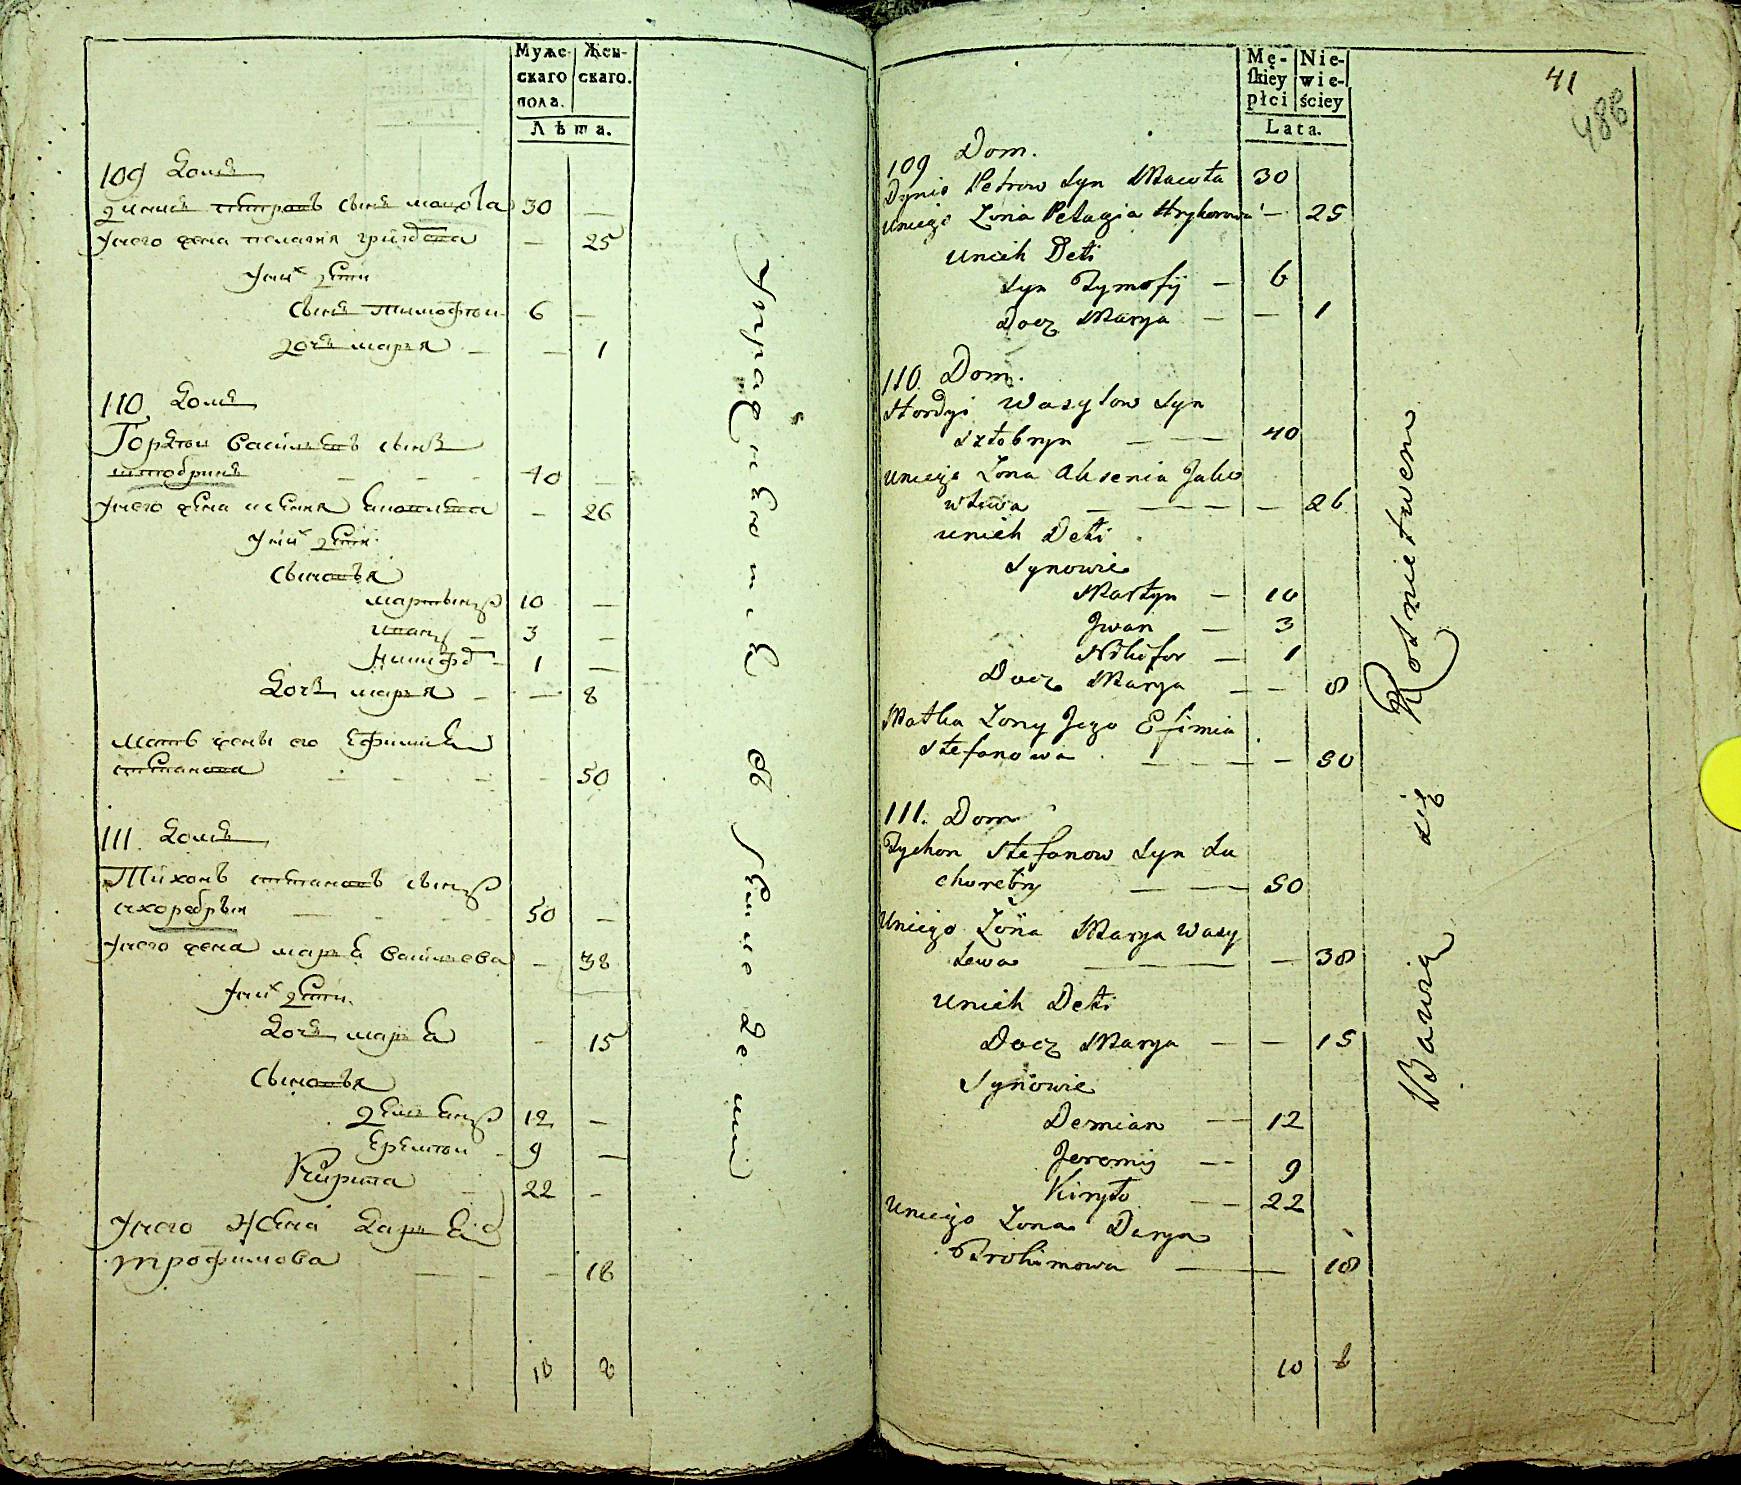 Муже-
скаго
пола.
Жен-
скаго.
Лѣта.
109 Домъ
сынъ 30 —
Унего жена пелагия — 25
Уних дети
Сынъ тимофеи 6 —
дочь марья — 1
110 Домъ
Гордеи Василевъ сынъ
40 —
Унего жена — 26
Уних дети
Сыновья
мартынъ 10 —
иванъ 3 —
1 —
Дочь марья — 8
мать жены его Ефимия
степанова — 50
111 Домъ
Тихонъ степановъ сынъ
50 —
Унего жена марья василева — 38
Уних дети
Дочь марья — 15
Сыновья
демьянъ 12 —
Еремеи 9 —
Кирила 22 —
Унего жена Дарья
трофимова — 18
10 8
Упражняются в земледелии
Mę-
skiey
płci
Nie-
wie-
ściey
Lata.
41
486
109 Dom.
Petrow Syn 30
Uniego Zona Pelagia Hryhorowa — 25
Unich Deti
Syn Tymofij — 6
Docz Marya — — 1
110. Dom.
Hordyi Wasylow Syn
— — 40
Uniego Zona Aksenia Jako
wlewa — — — 26
Unich Deti
Synowie
Martyn — 10
Jwan — 3
Nikifor — 1
Docz Marya — — 8
Matka Zony Jego Efimia
Stefanowa — — — 50
111. Dom
Tychon Stefanow Syn Su
chorebry — — 50
Uniego Zona Marya Wasy
lewa — — 38
Unich Deti
Docz Marya — — 15
Synowie
Demian — 12
Jeremij — 9
Kiryło — 22
Uniego Zona Darya
Trohimowa — 18
10 8
Bawią się Rolnictwem